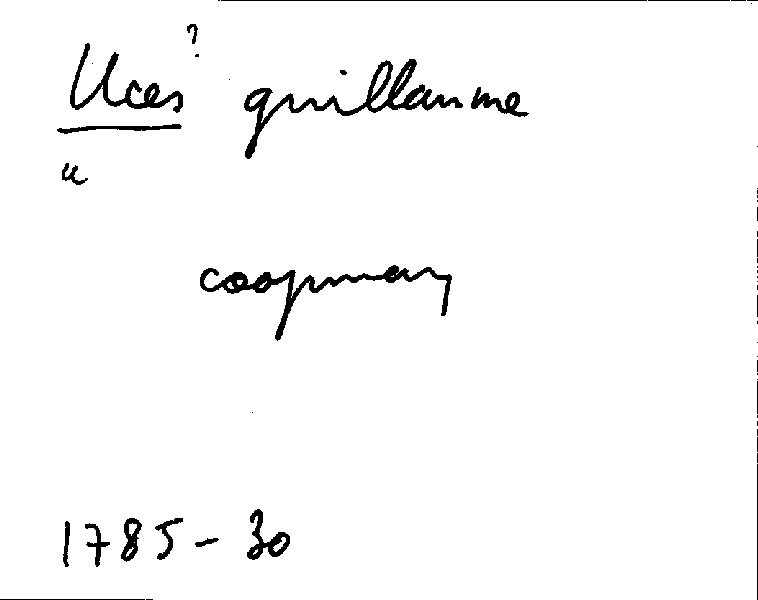 Uces ? guillaume
u
coopman
1785-30